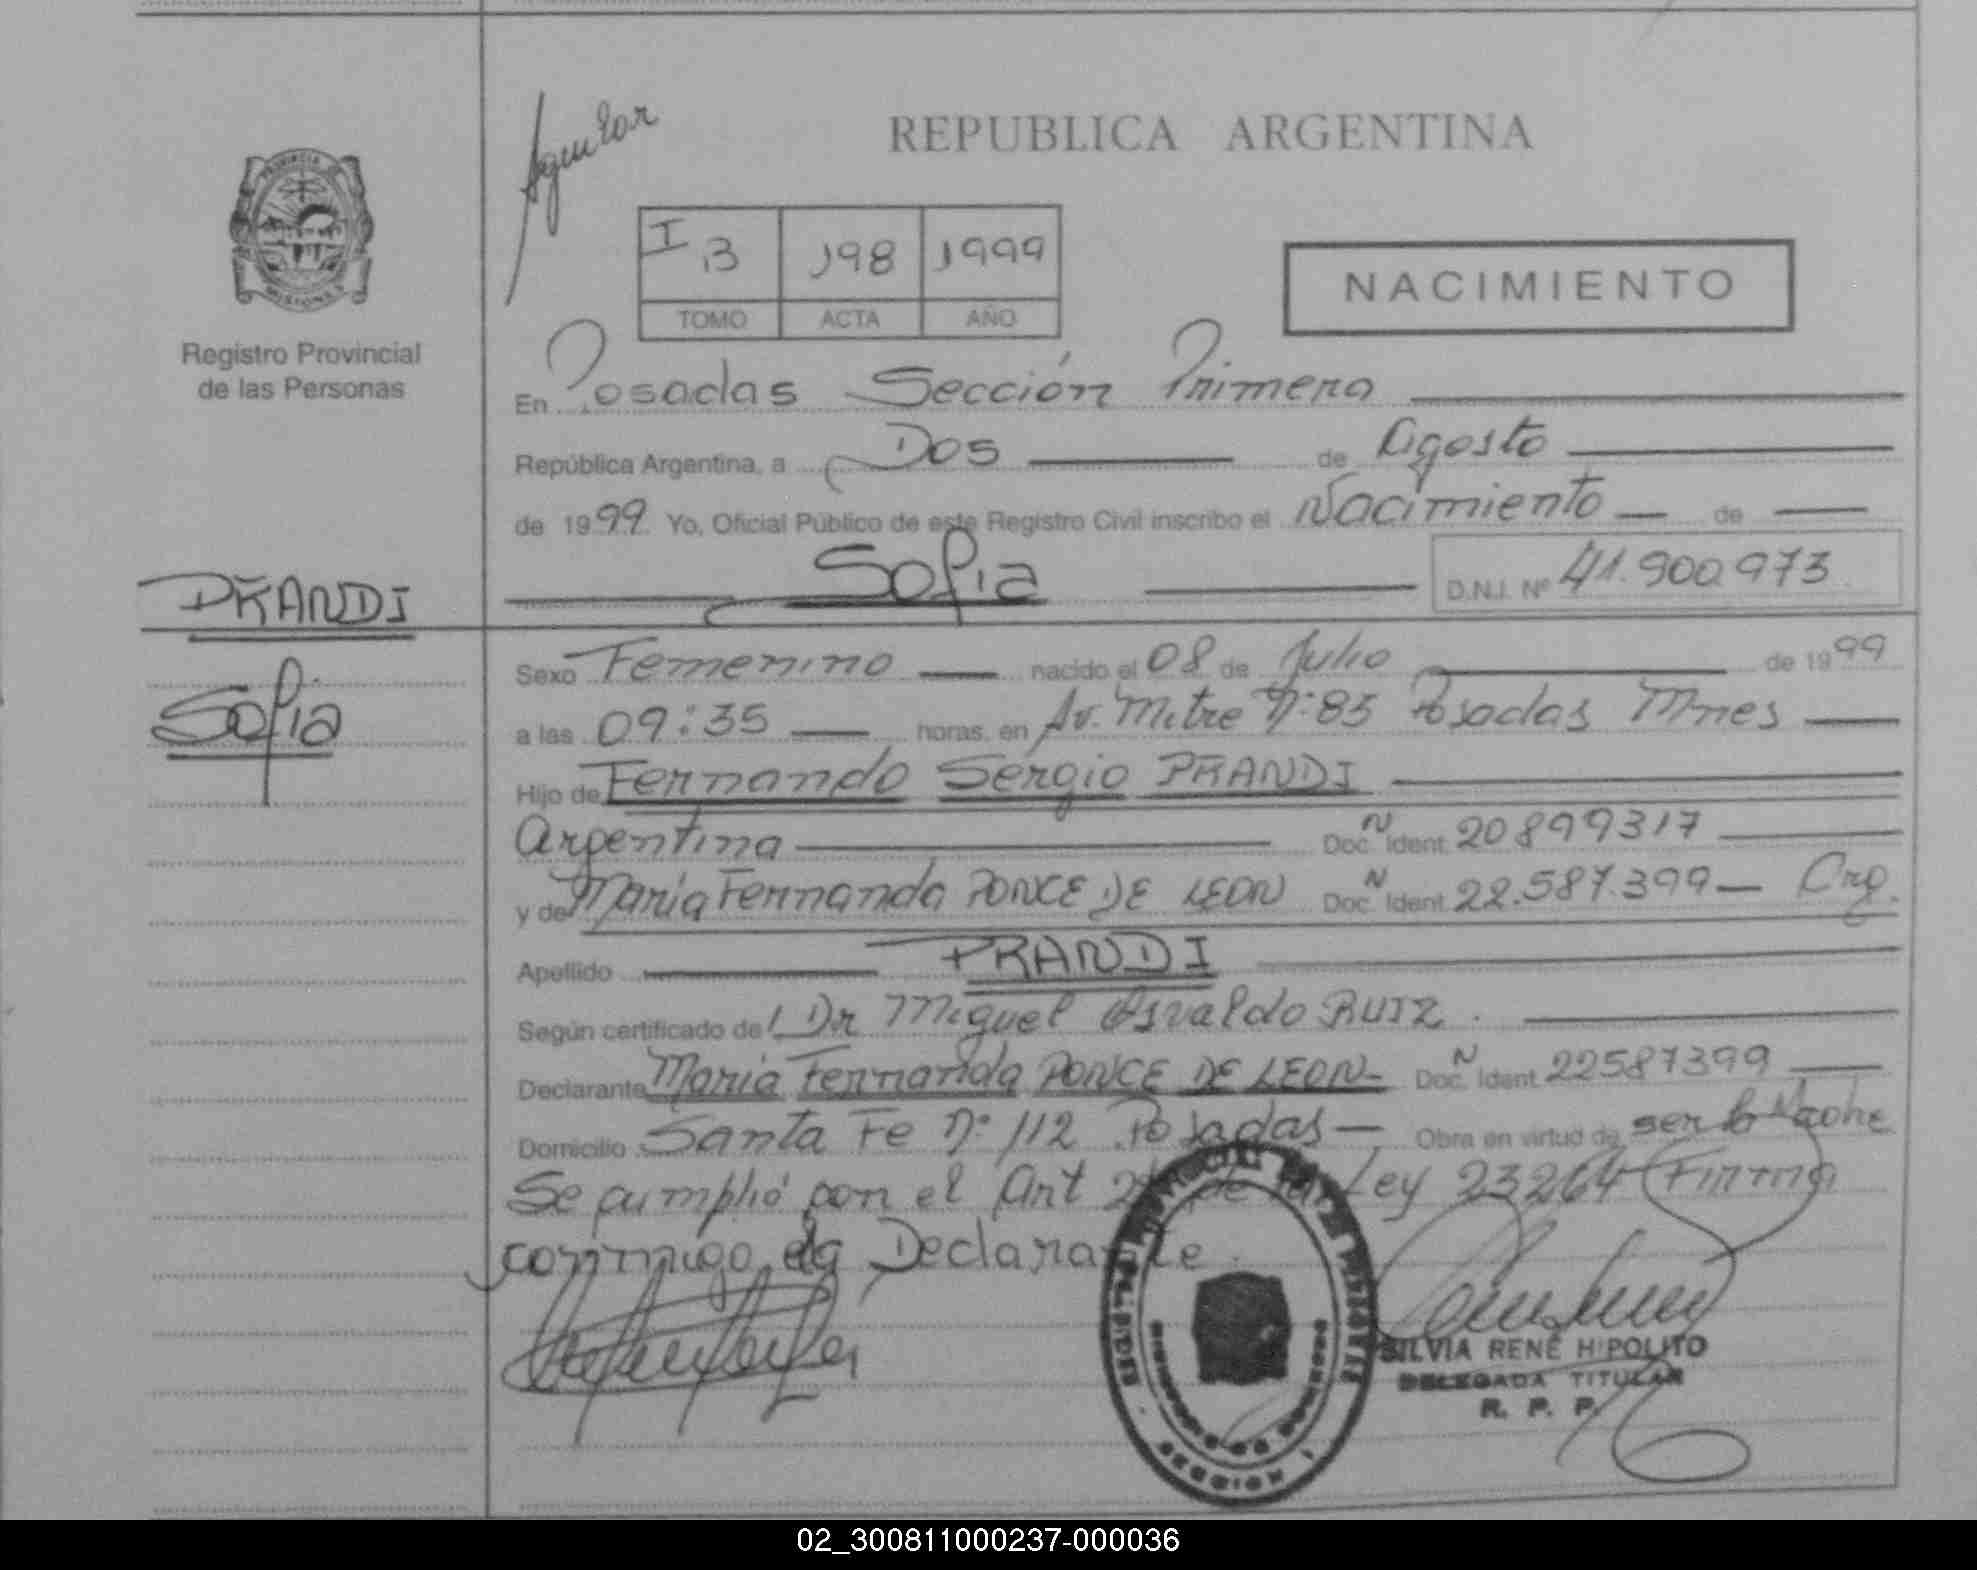 Aguilar
REPUBLICA ARGENTINA
PROVINCIA DE
MISIONES
I 3 198 1999
TOMO ACTA AÑO
NACIMIENTO
Registro Provincial
de las Personas
En Posadas Sección Primera
República Argentina, a Dos de Agosto
de 1999 Yo, Oficial Público de este Registro Civil inscribo el Nacimiento de
Sofia D.N.I. Nº 41.900.973
PRANDI
Sofia
Sexo Femenino nacido el 08 de Julio de 1999
a las 09:35 horas, en Av. Mitre Nº 83 Posadas Mnes
Hijo de Fernando Sergio PRANDI
Argentina Doc. N Ident. 20899317
y de Maria Fernanda PONCE DE LEON Doc. N Ident. 22.587.399 — Arg.
Apellido PRANDI
Según certificado de Dr Miguel Osvaldo RUIZ.
Declarante Maria Fernanda PONCE DE LEON - Doc. N Ident. 22587399
Domicilio Santa Fe Nº 112 Posadas — Obra en virtud de ser la Madre
Se cumplió con el Art de la Ley 23264 Firma
conmigo la Declarante.
SILVIA RENÉ HIPOLITO
DELEGADA TITULAR
R. P. P.
02_300811000237-000036